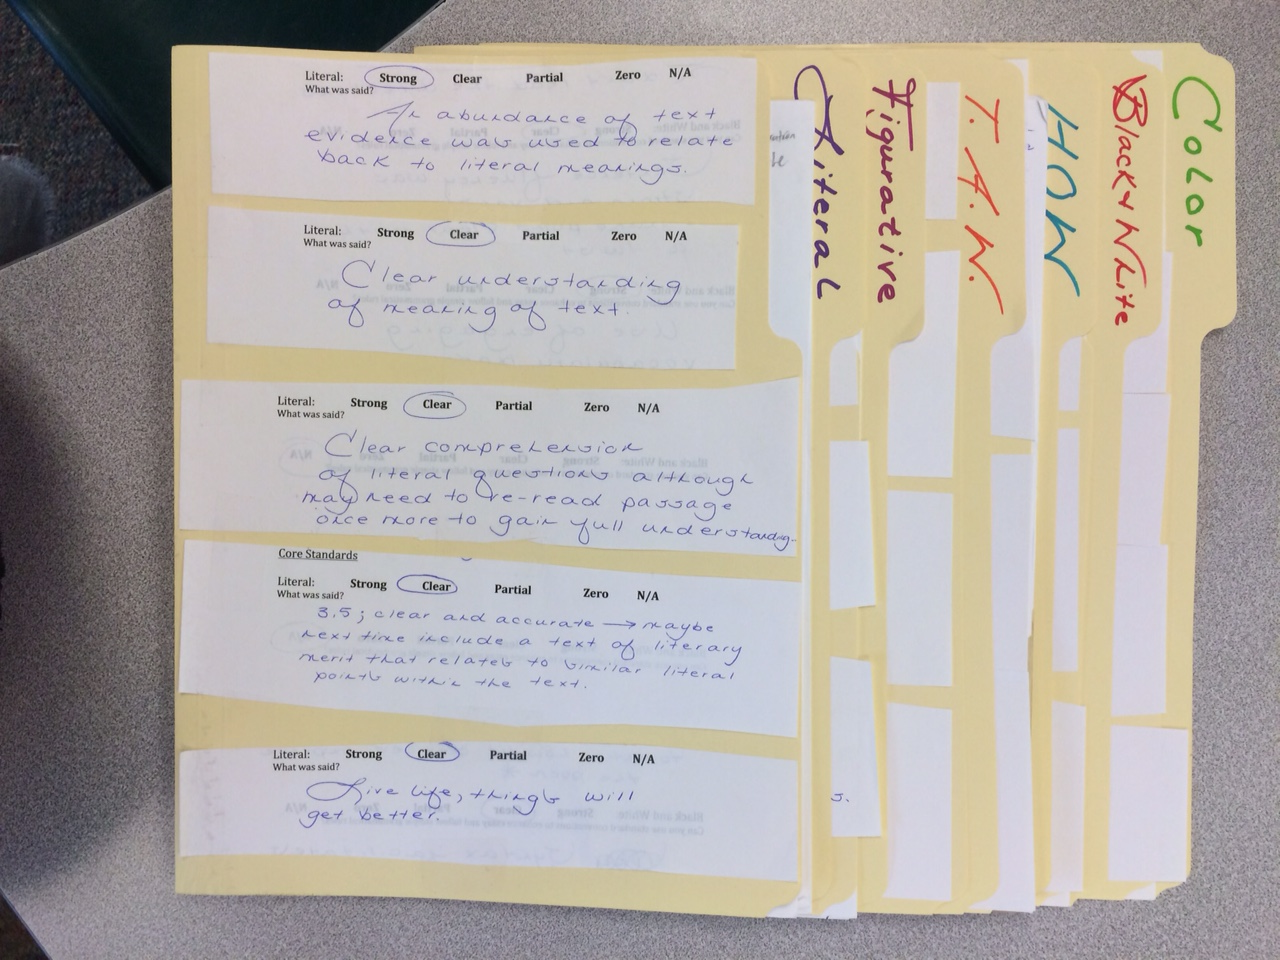 Literal: Strong Clear Partial Zero N/A
What was said?
An abundance of text
evidence was used to relate
back to literal meanings.
Literal: Strong Clear Partial Zero N/A
What was said?
Clear understanding
of meaning of text.
Literal: Strong Clear Partial Zero N/A
What was said?
Clear comprehension
of literal questions although
may need to re-read passage
once more to gain full understanding.
Core Standards
Literal: Strong Clear Partial Zero N/A
What was said?
3.5; clear and accurate → maybe
next time include a text of literary
merit that relates to similar literal
points within the text.
Literal: Strong Clear Partial Zero N/A
What was said?
Live life, things will
get better.
Literal
Figurative
T.A.W.
HOW
Black & White
Color
s.